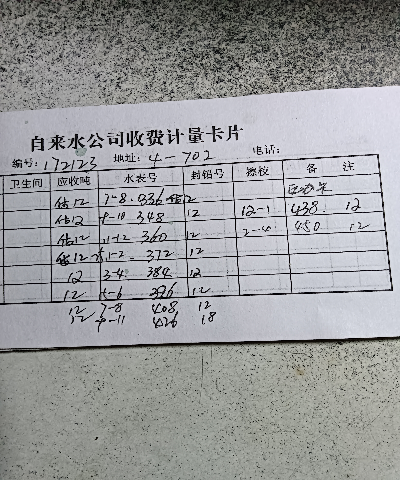 自来水公司收费计量卡片
编号: 172123 地址: 4-702 电话:
卫生间 应收吨 水表号 封铅号 检校 备 注
估12 7-8 336 估12
估12 9-10 348 12 12-1 438 12
估12 11-12 360 12 2-4 450 12
估12 1-2 372 12
12 3-4 384 12
12 5-6 396 12
12 7-8 408 12
12 9-11 426 18